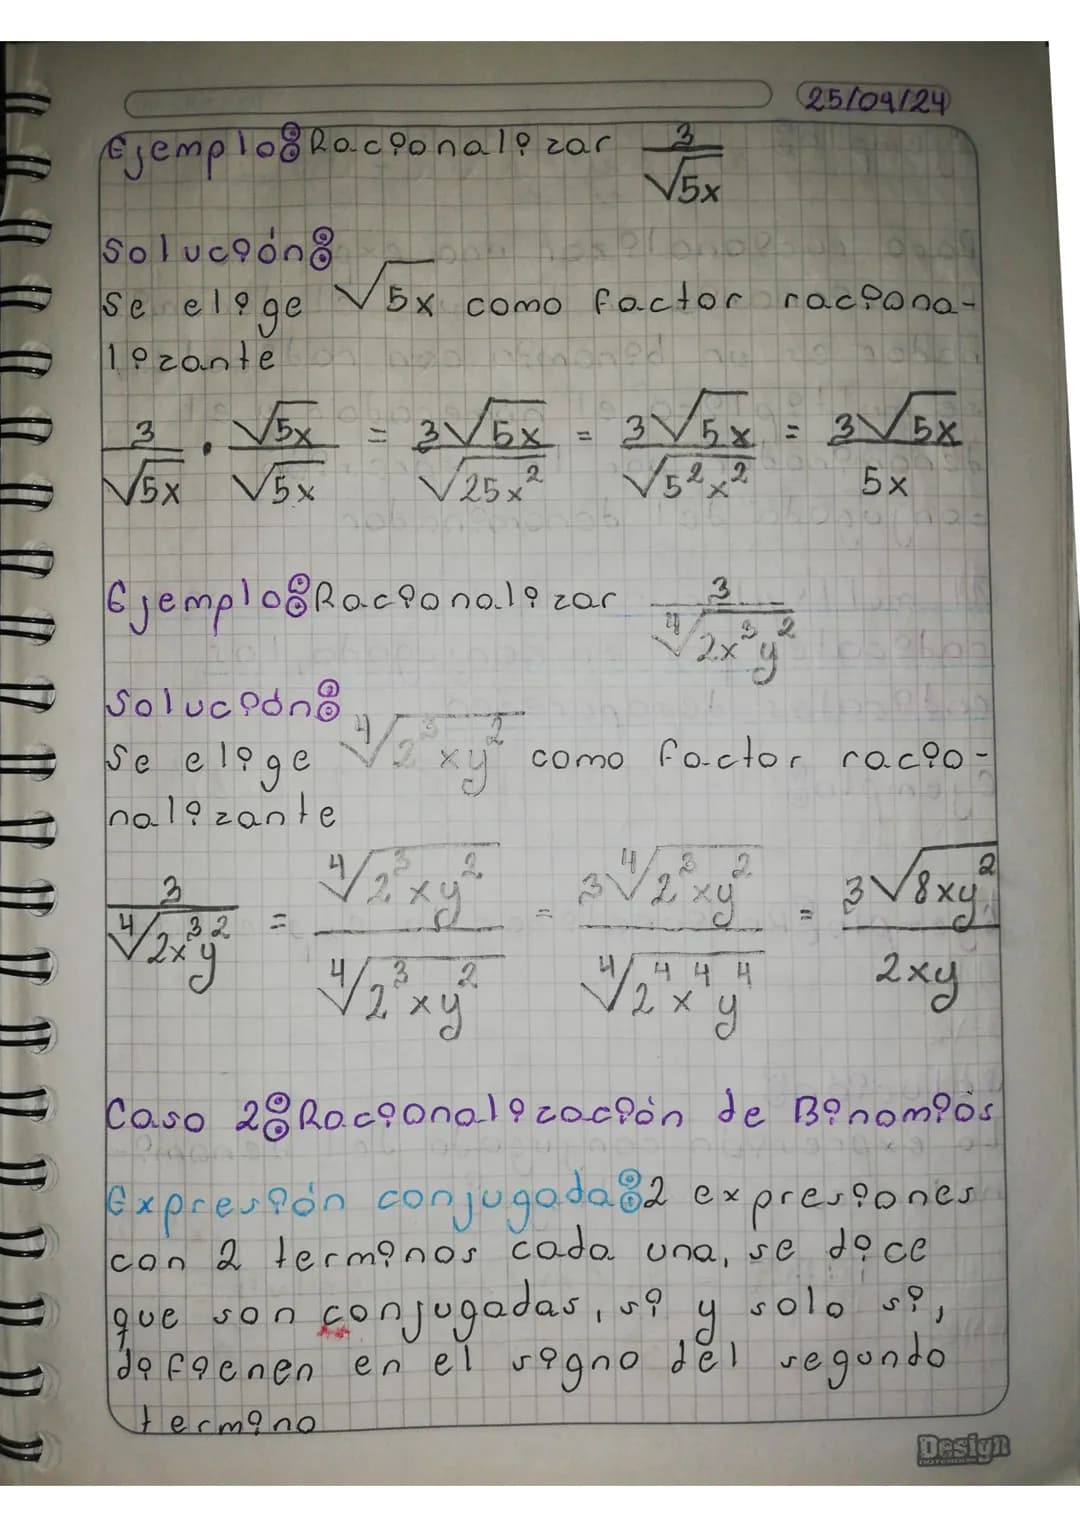 25/09/24
Ejemplo: Racionalizar 3/√5x
Solución:
Se elige √5x como factor raciona-
lizante
3/√5x · √5x/√5x = 3√5x/√25x² = 3√5x/√5²x² = 3√5x/5x
Ejemplo: Racionalizar 3/⁴√2x³y²
Solución:
Se elige ⁴√2³xy² como factor racio-
nalizante
3/⁴√2x³y² = ⁴√2³xy²/⁴√2³xy² = 3⁴√2³xy²/⁴√2⁴x⁴y⁴ = 3√8xy²/2xy
Caso 2: Racionalización de Binomios
Expresión conjugada: 2 expresiones
con 2 terminos cada una, se dice
que son conjugadas, si y solo si,
difienen en el signo del segundo
termino
Design
NOTEBOOK